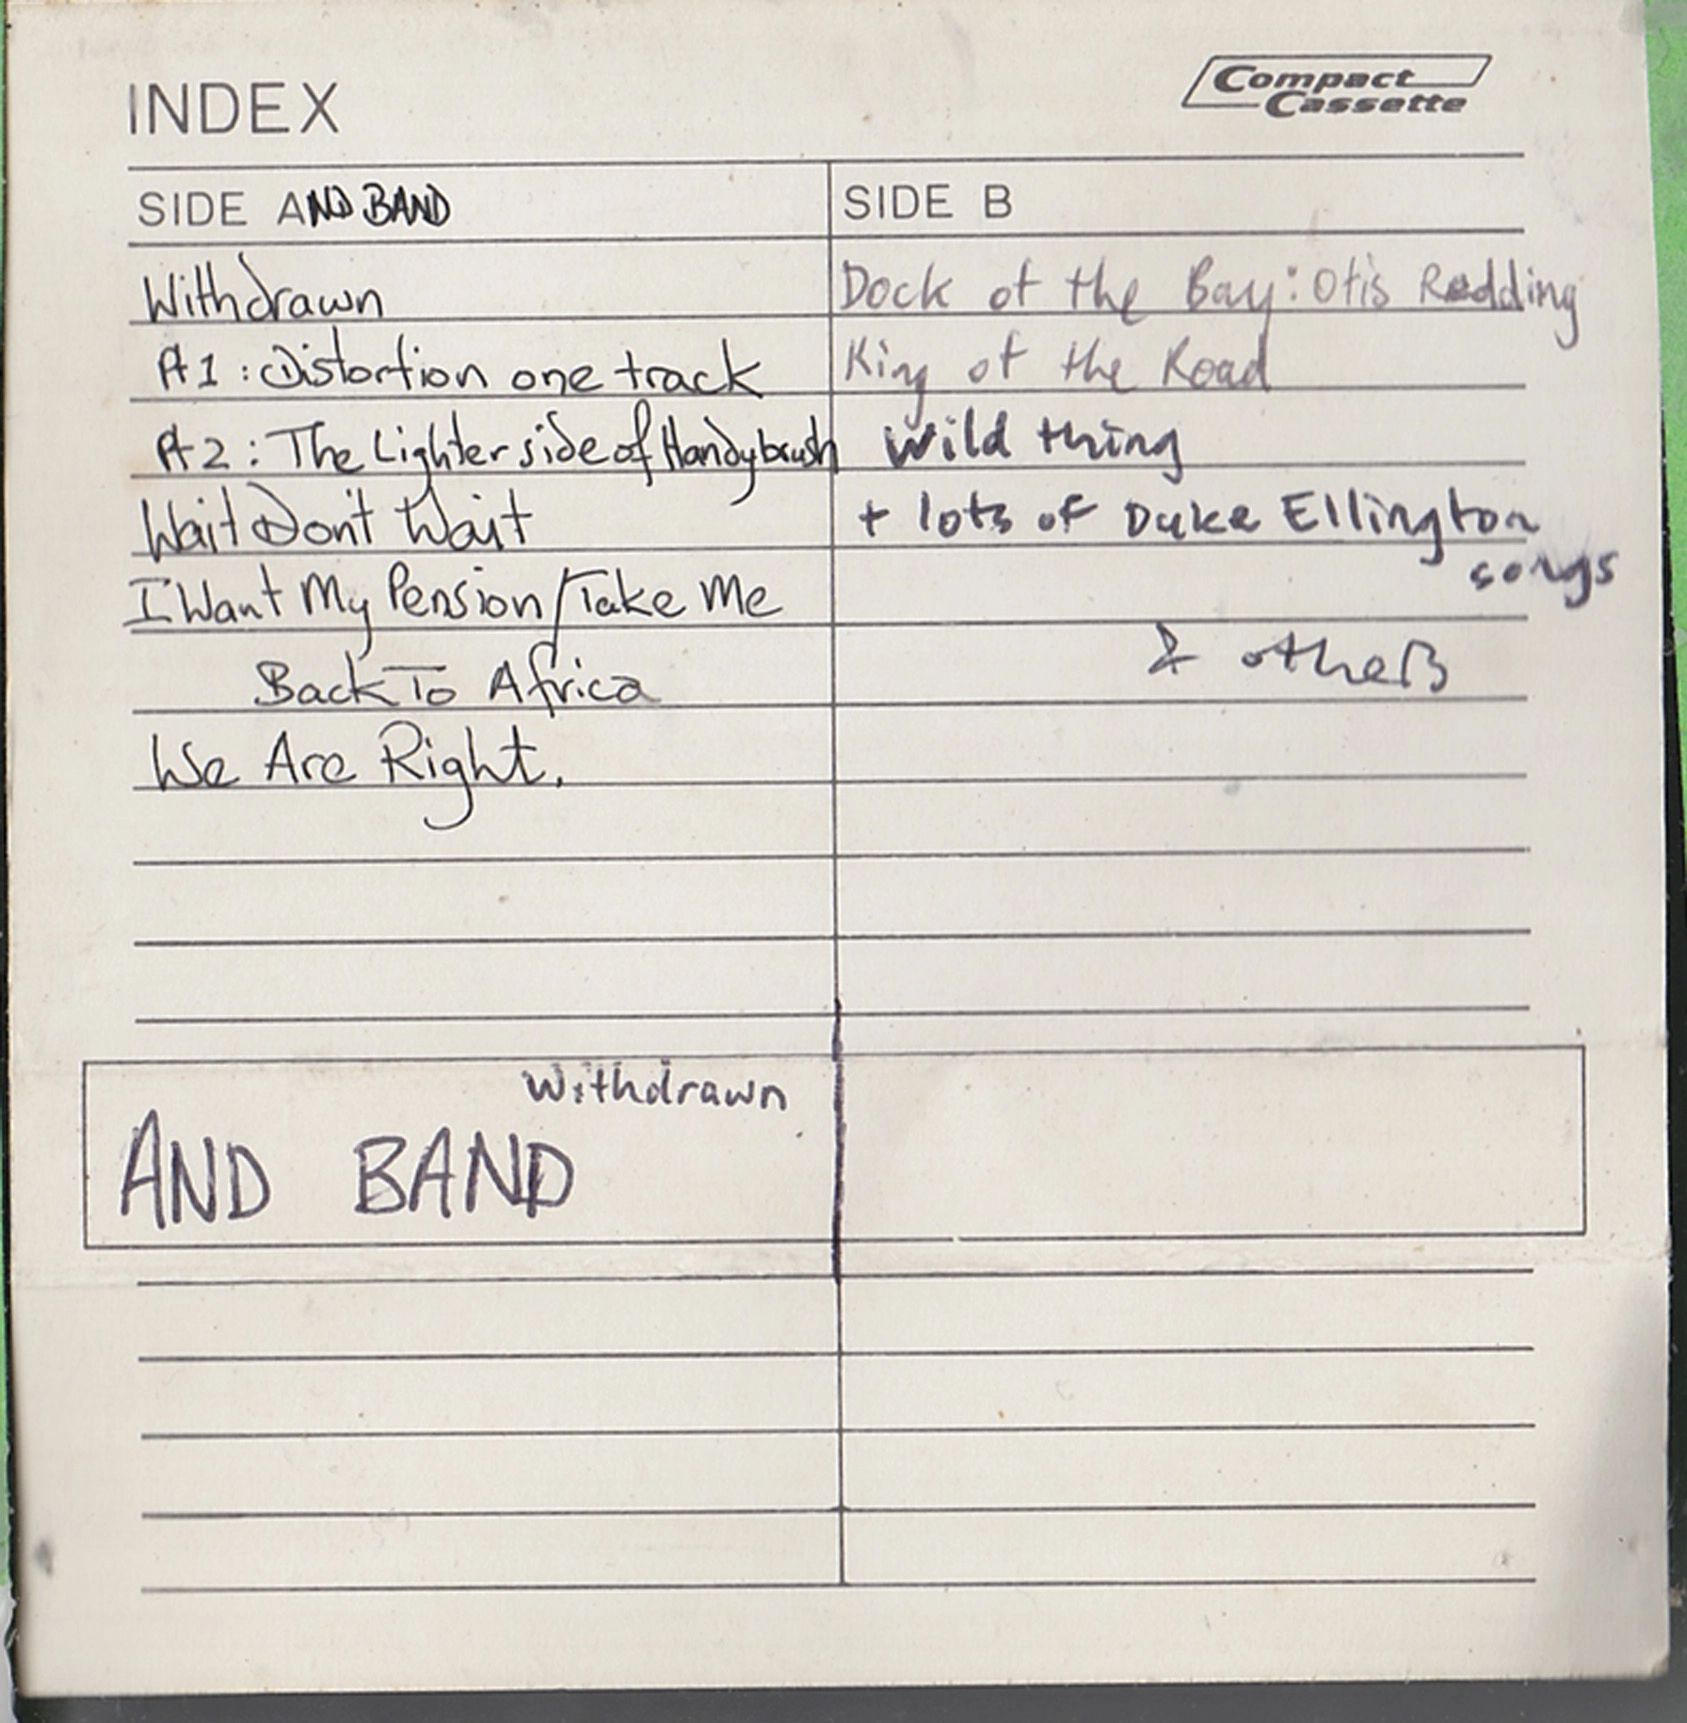 INDEX
Compact
Cassette
SIDE AND BAND
Withdrawn
Pt 1 : Distortion one track
Pt 2 : The Lighter side of Handybrush
Wait Don't Wait
I Want My Pension/Take Me
Back To Africa
We Are Right.
SIDE B
Dock of the Bay: Otis Redding
King of the Road
Wild thing
+ lots of Duke Ellington
songs
& others
Withdrawn
AND BAND